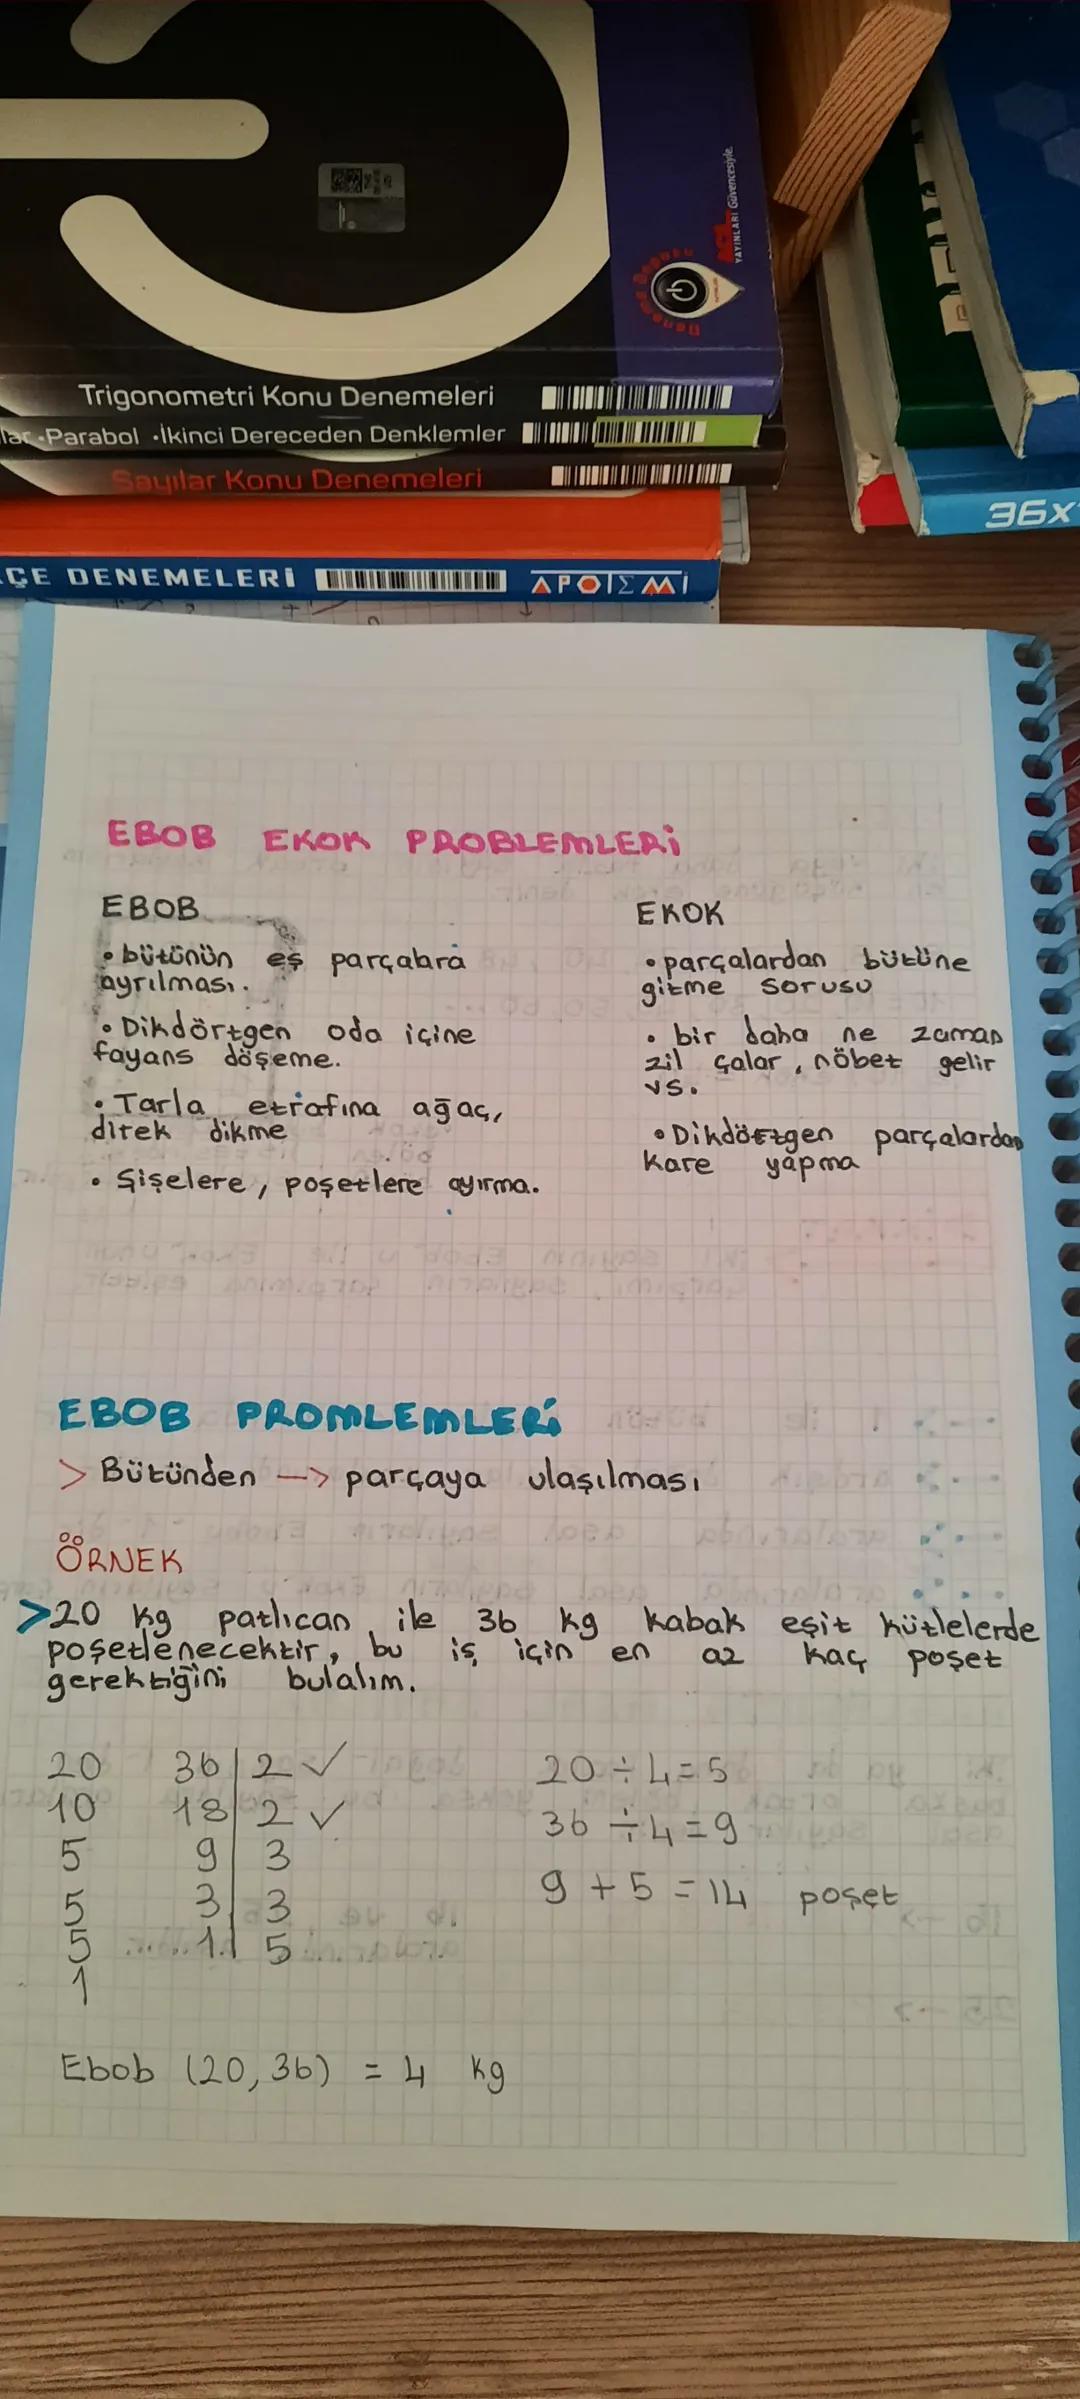 YAYINLARI Güvencesiyle.
Trigonometri Konu Denemeleri
Parabol • İkinci Dereceden Denklemler
Sayılar Konu Denemeleri
ÇE DENEMELERİ
APOTEMİ
36x
EBOB EKOK PROBLEMLERİ
EBOB
• bütünün eş parçalara
ayrılması.
• Dikdörtgen oda içine
fayans döşeme.
• Tarla etrafına ağaç,
direk dikme
• Şişelere, poşetlere ayırma.
EKOK
• parçalardan bütüne
gitme sorusu
• bir daha ne zaman
zil çalar, nöbet gelir
vs.
• Dikdörtgen parçalardan
kare yapma
EBOB PROMLEMLERİ
> Bütünden --> parçaya ulaşılması
ÖRNEK
>20 kg patlıcan ile 36 kg kabak eşit kütlelerde
poşetlenecektir, bu iş için en az kaç poşet
gerektiğini bulalım.
20 36 | 2 ✓
10 18 | 2 ✓
5 9 | 3
5 3 | 3
5 1 | 5
1
20 ÷ 4 = 5
36 ÷ 4 = 9
9 + 5 = 14 poşet
Ebob (20, 36) = 4 kg